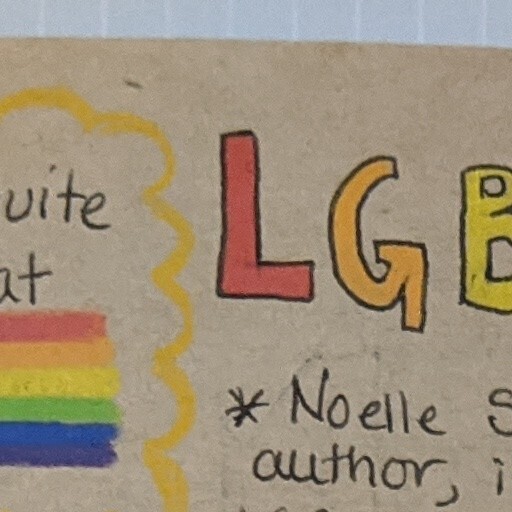 uite
at
LGB
* Noelle S
author, i